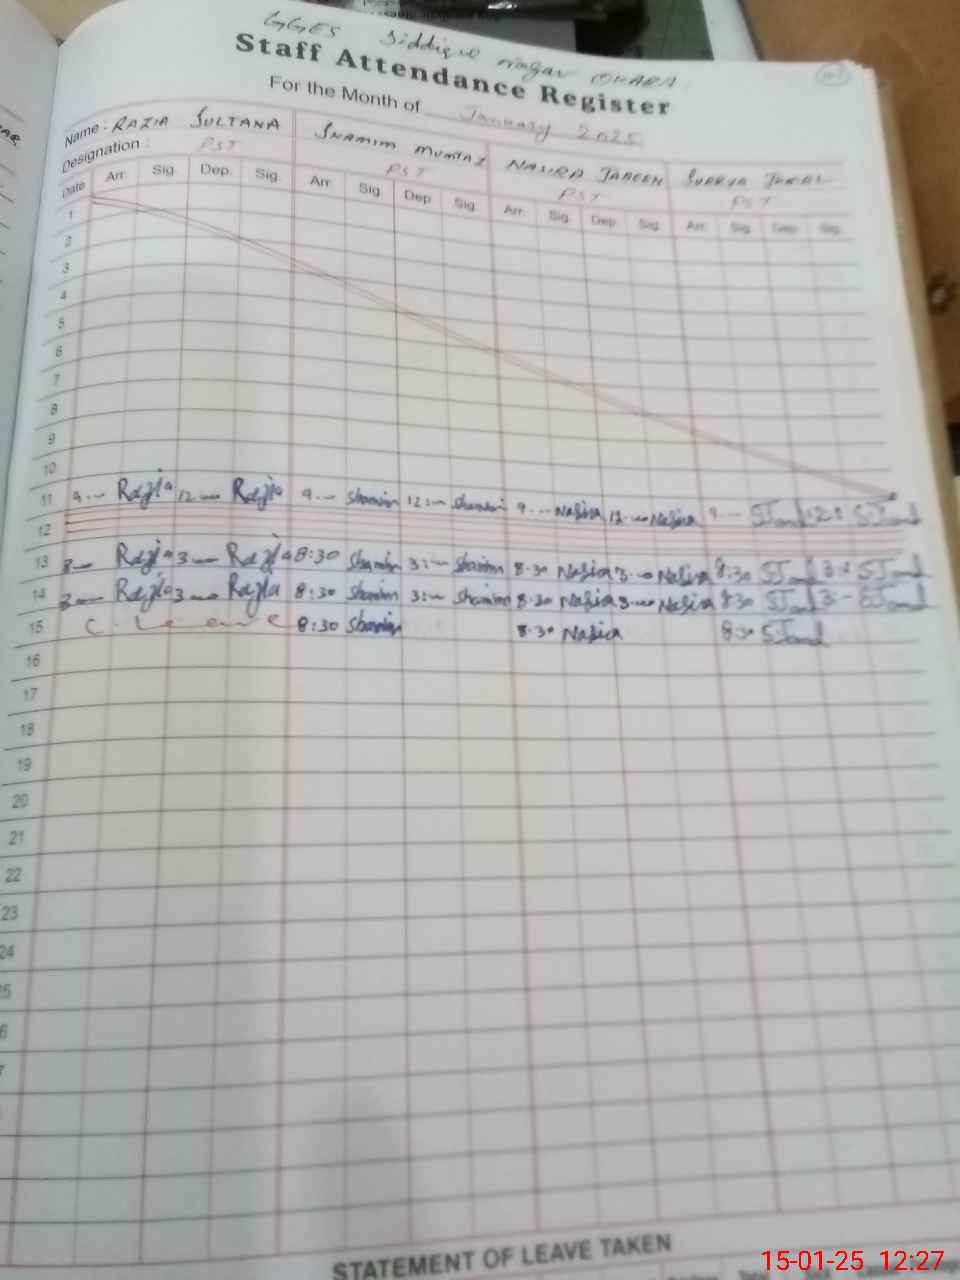 GGES Siddique nagar OKARA
Staff Attendance Register
For the Month of January 2025
Name: RAZIA SULTANA SHAMIM MUMTAZ NASIRA JABEEN SURRYA JAMAL
Designation: PST PST PST PST
Date Arr. Sig. Dep. Sig. Arr. Sig. Dep. Sig. Arr. Sig. Dep. Sig. Arr. Sig. Dep. Sig.
1
2
3
4
5
6
7
8
9
10
11 9.— Razia 12.— Razia 9.— Shamim 12:— Shamim 9.— Nasira 12.— Nasira 9.—
12
13 8— Razia 3.— Razia 8:30 Shamim 3:— Shamim 8.30 Nasira 3.— Nasira 8:30
14 Razia 3.— Razia 8:30 Shamim 3:— Shamim 8.30 Nasira 3.— Nasira 8.30
15 C. Leave 8:30 Shamim 8.30 Nasira 8.30
16
17
18
19
20
21
22
23
24
5
6
7
STATEMENT OF LEAVE TAKEN
15-01-25 12:27